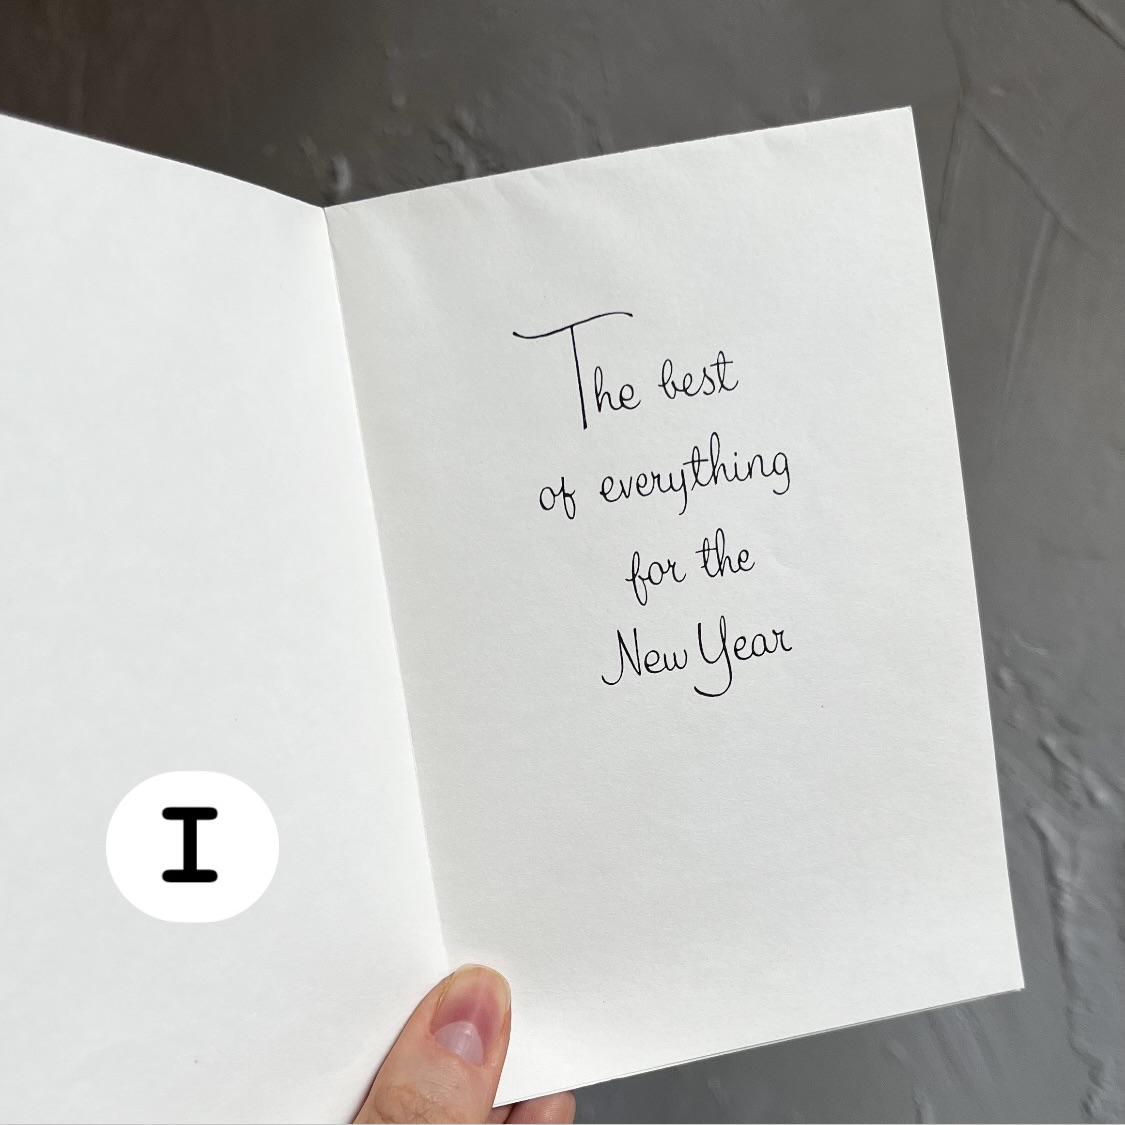 The best
of everything
for the
New Year
I